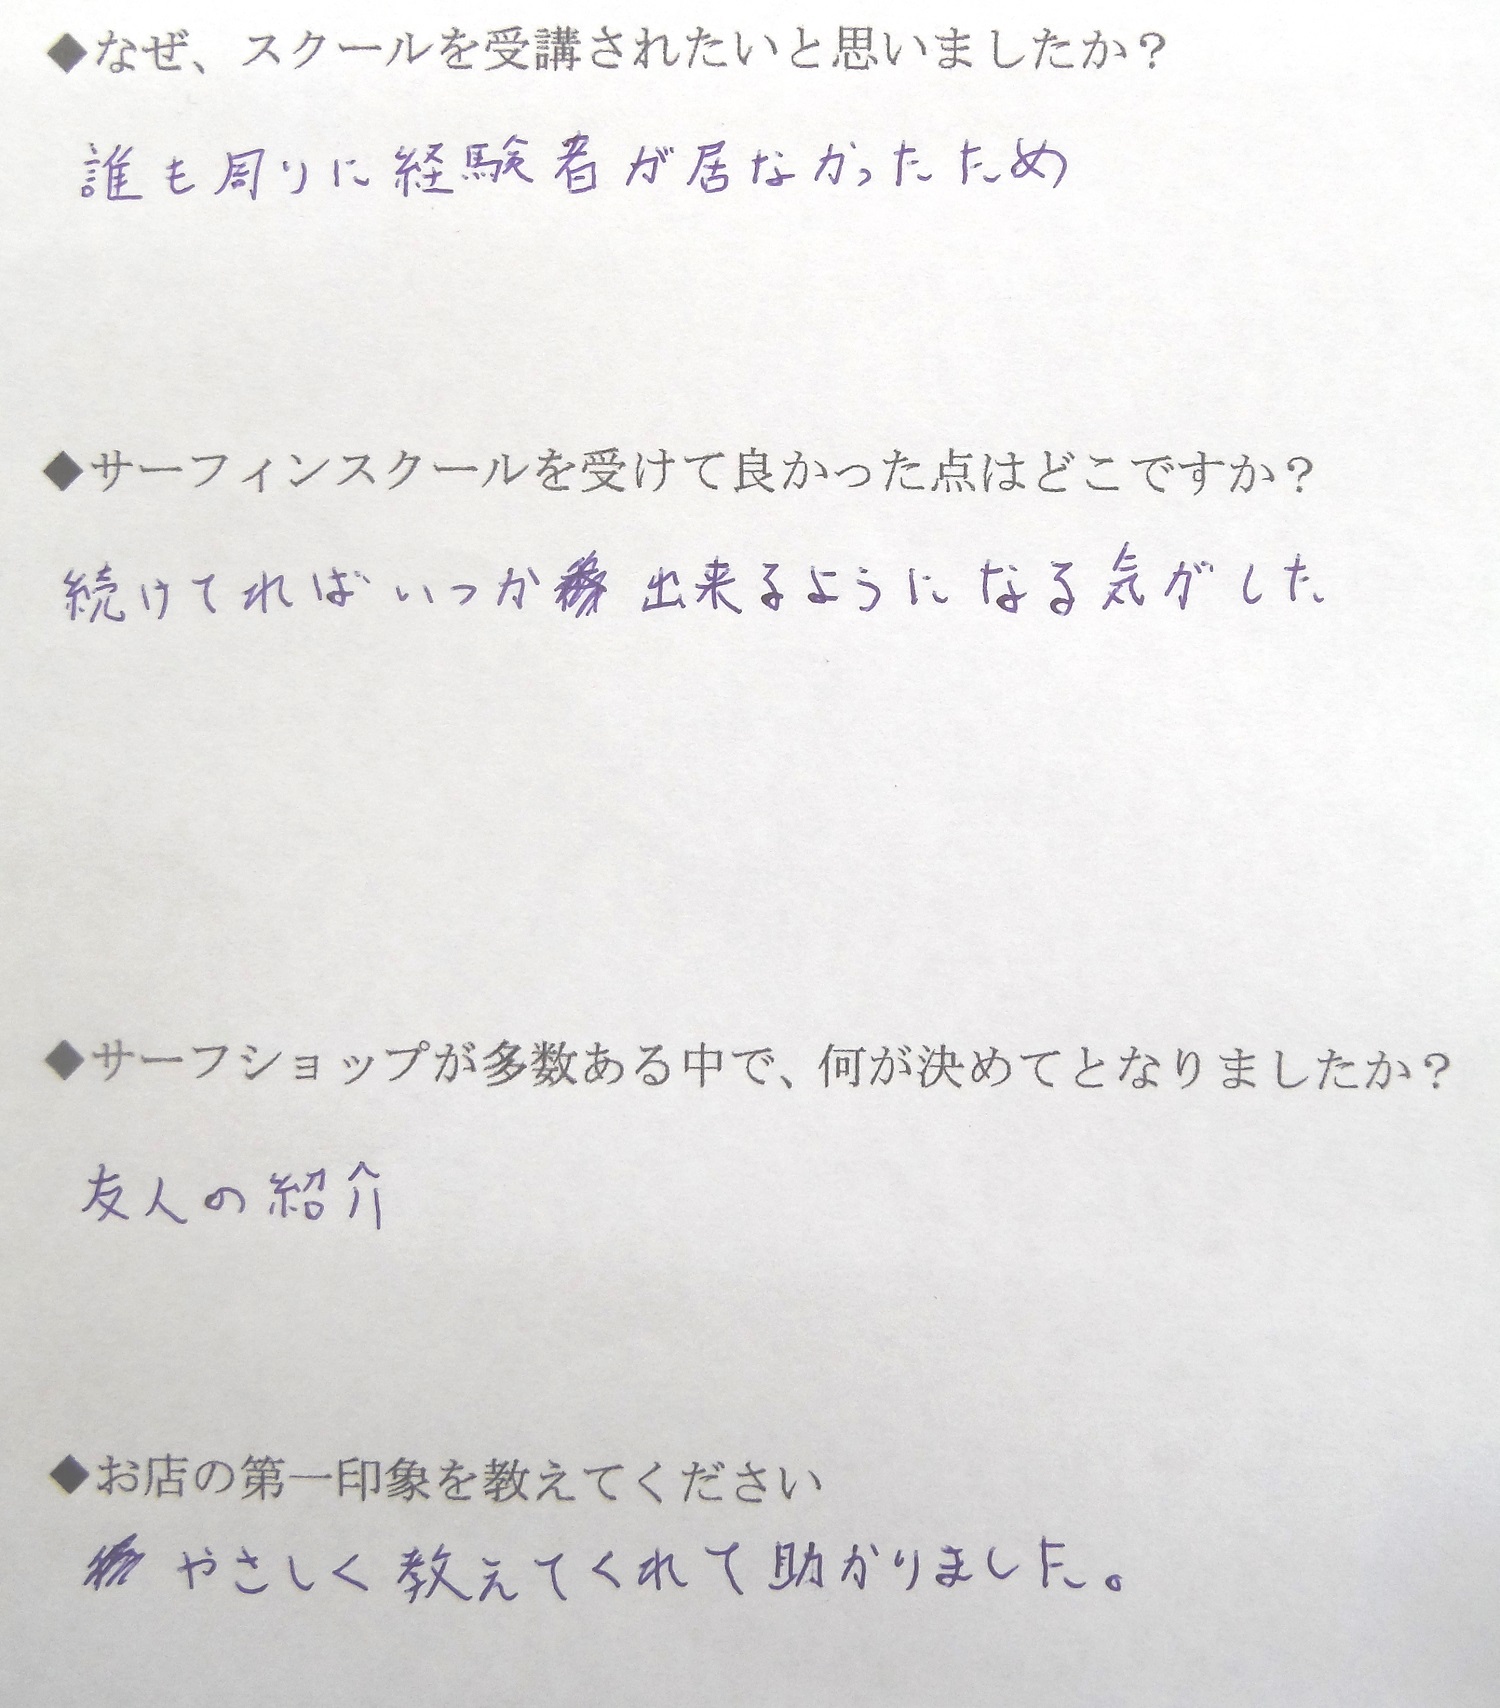 ◆なぜ、スクールを受講されたいと思いましたか？
誰も周りに経験者が居なかったため
◆サーフィンスクールを受けて良かった点はどこですか？
続けてればいつか出来るようになる気がした
◆サーフショップが多数ある中で、何が決めてとなりましたか？
友人の紹介
◆お店の第一印象を教えてください
やさしく教えてくれて助かりました。